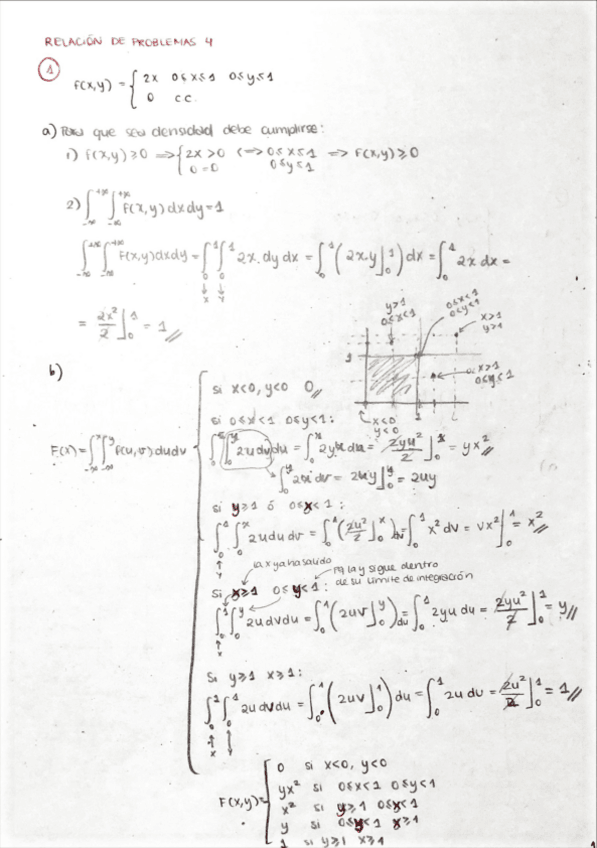 RELACIÓN DE PROBLEMAS 4
1
f(x,y) = { 2x 0≤x≤1 0≤y≤1
0 c.c.
a) Para que sea densidad debe cumplirse:
1) f(x,y) ≥ 0 ⇒ { 2x > 0 ⟺ 0≤x≤1 ⇒ f(x,y) ≥ 0
0 = 0 0≤y≤1
2) ∫_{-∞}^{+∞} ∫_{-∞}^{+∞} f(x,y) dx dy = 1
∫_{-∞}^{+∞} ∫_{-∞}^{+∞} f(x,y) dx dy = ∫_0^1 ∫_0^1 2x. dy dx = ∫_0^1 (2x.y]_0^1) dx = ∫_0^1 2x dx =
↓ ↓
x y
= 2x²/2 ]_0^1 = 1 //
y≥1
0≤x<1
0≤x<1
0≤y<1
x≥1
y≥1
x≥1
0≤y≤1
1
1
x<0
y<0
b)
si x<0, y<0 0//
si 0≤x<1 0≤y≤1:
F(x) = ∫_{-∞}^x ∫_{-∞}^y f(u,v) du dv
∫_0^x ∫_0^y 2u dv du = ∫_0^x 2yu du = 2yu²/2 ]_0^x = yx² //
∫_0^y 2u dv = 2uy ]_0^y = 2uy
si y≥1 ó 0≤x<1:
∫_0^1 ∫_0^x 2u du dv = ∫_0^1 (2u²/2 ]_0^x) dv = ∫_0^1 x² dv = vx² ]_0^1 = x² //
↑
y
la x ya ha salido
pq la y sigue dentro
de su límite de integración
Si x≥1 0≤y<1:
∫_0^1 ∫_0^y 2u dv du = ∫_0^1 (2uv ]_0^y) du = ∫_0^1 2yu du = 2yu²/2 ]_0^1 = y //
↑
x
Si y≥1 x≥1:
∫_0^1 ∫_0^1 2u dv du = ∫_0^1 (2uv ]_0^1) du = ∫_0^1 2u du = 2u²/2 ]_0^1 = 1 //
↑ ↑
x y
F(x,y) = { 0 si x<0, y<0
yx² si 0≤x<1 0≤y<1
x² si y≥1 0≤x<1
y si 0≤y<1 x≥1
1 si y≥1 x≥1
1